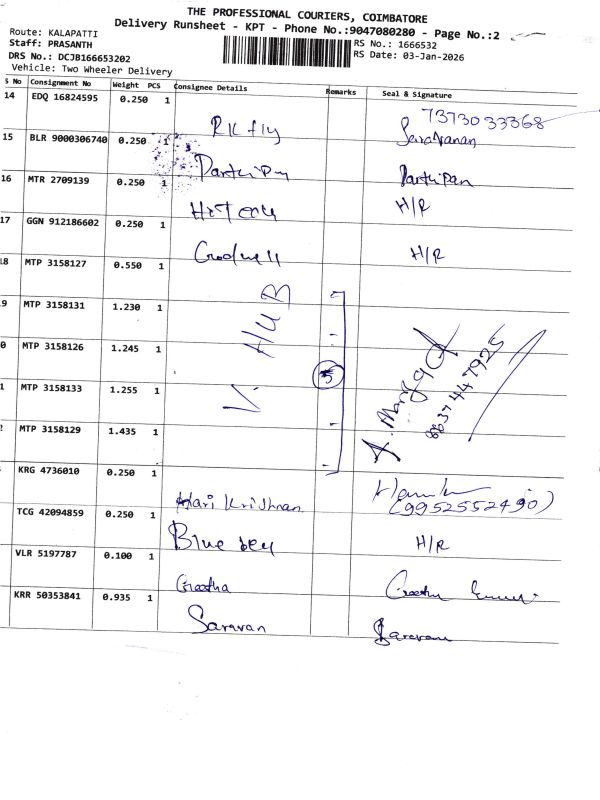 THE PROFESSIONAL COURIERS, COIMBATORE
Delivery Runsheet - KPT - Phone No.:9047080280 - Page No.:2
Route: KALAPATTI
Staff: PRASANTH
RS No.: 1666532
DRS No.: DCJB166653202
RS Date: 03-Jan-2026
Vehicle: Two Wheeler Delivery
S No Consignment No Weight PCS Consignee Details Remarks Seal & Signature
14 EDQ 16824595 0.250 1 7373033368
RK fly Saravanan
15 BLR 9000306740 0.250 1
Parthipan Parthipan
16 MTR 2709139 0.250 1
H/R
17 GGN 912186602 0.250 1
Goodwell H/R
18 MTP 3158127 0.550 1
9 MTP 3158131 1.230 1
V. HUB
0 MTP 3158126 1.245 1
5
8837447925
1 MTP 3158133 1.255 1
2 MTP 3158129 1.435 1
KRG 4736010 0.250 1
Hari Krishnan (9952552490)
TCG 42094859 0.250 1
Blue H/R
VLR 5197787 0.100 1
Geetha Geetha
KRR 50353841 0.935 1
Saravan Saravan